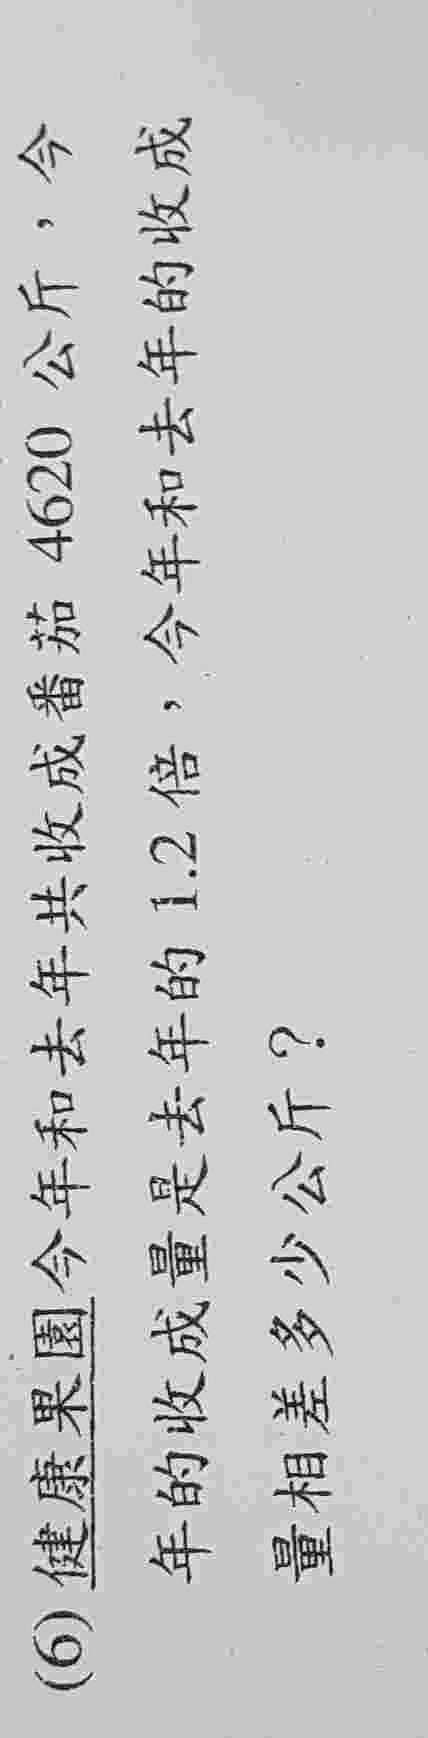 (6) 健康果園今年和去年共收成番茄 4620 公斤，今
年的收成量是去年的 1.2 倍，今年和去年的收成
量相差多少公斤？